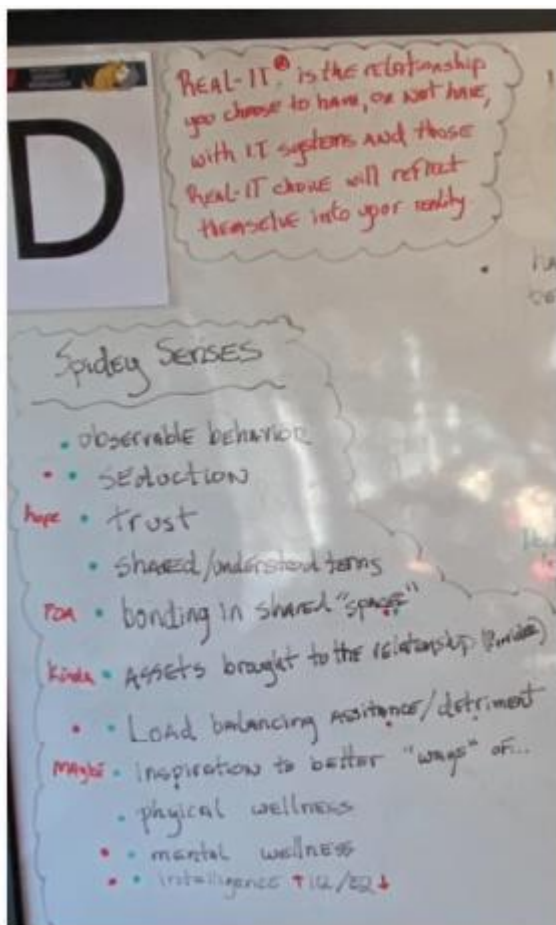 D
REAL-IT® is the relationship
you choose to have, or not have,
with IT systems and those
REAL-IT choice will reflect
themselve into your reality
ha
be
Spidey SENSES
• observable behavior
• • SEduction
hope • trust
• shared/understood terms
PDA • bonding in shared "space"
Kinda • ASSETS brought to the relationship
• • Load balancing assitance/detriment
MAybE • inspiration to better "ways" of...
• phyical wellness
• • mental wellness
• • intelligence ↑IQ/EQ↓